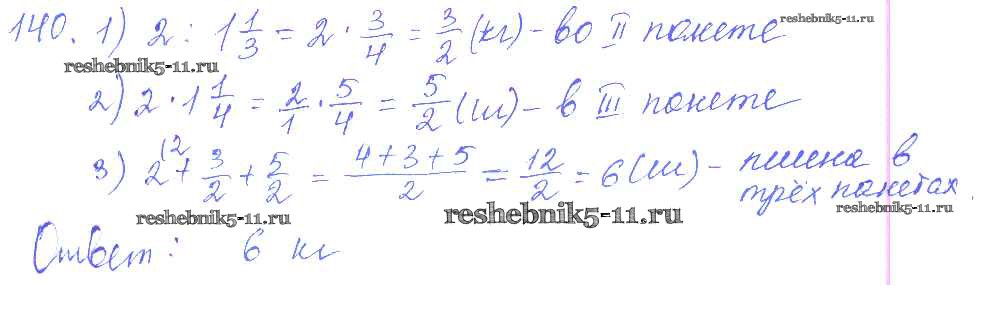 140. 1) 2 : 1 1/3 = 2 · 3/4 = 3/2 (кг) - во II пакете
reshebnik5-11.ru
reshebnik5-11.ru
2) 2 · 1 1/4 = 2/1 · 5/4 = 5/2 (кг) - в III пакете
3) 2 (2 + 3/2 + 5/2 = 4+3+5/2 = 12/2 = 6 (кг) - пшена в
трёх пакетах
reshebnik5-11.ru
reshebnik5-11.ru
reshebnik5-11.ru
Ответ: 6 кг